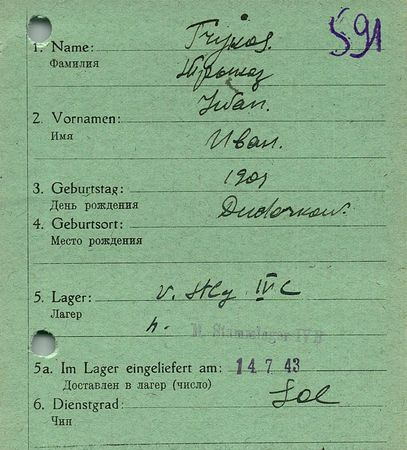 591
1. Name:
Фамилия
Iwan.
2. Vornamen:
Имя
Иван.
3. Geburtstag: 1901
День рождения
4. Geburtsort: Dudarkow.
Место рождения
5. Lager: v. Stlg IV C
Лагер
n. M. Stammlager IV B
5a. Im Lager eingeliefert am: 14.7.43
Доставлен в лагер (число)
6. Dienstgrad: Sol
Чин